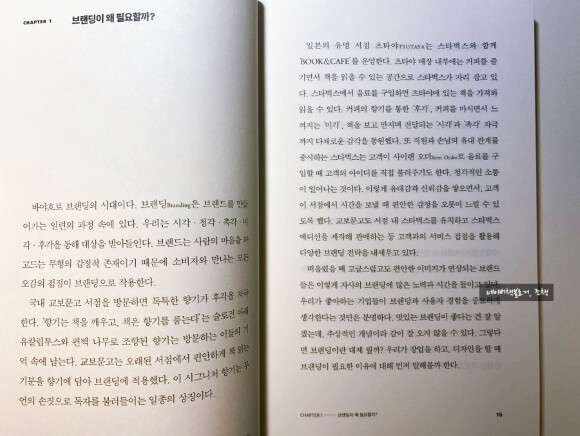 CHAPTER 1 브랜딩이 왜 필요할까?
바야흐로 브랜딩의 시대이다. 브랜딩Branding은 브랜드를 만들
어가는 일련의 과정 속에 있다. 우리는 시각·청각·촉각·미
각·후각을 통해 대상을 받아들인다. 브랜드는 사람의 마음을 파
고드는 무형의 감정적 존재이기 때문에 소비자와 만나는 모든
오감의 접점이 브랜딩으로 작용한다.
국내 교보문고 서점을 방문하면 독특한 향기가 후각을 자극
한다. '향기는 책을 깨우고, 책은 향기를 품는다'는 슬로건 아래
유칼립투스와 편백 나무로 조향된 향기는 방문하는 이들의 기
억 속에 남는다. 교보문고는 오래된 서점에서 편안하게 책 읽는
기분을 향기에 담아 브랜딩에 적용했다. 이 시그니처 향기는 무
언의 손짓으로 독자를 불러들이는 일종의 상징이다.
일본의 유명 서점 츠타야TSUTAYA는 스타벅스와 함께
'BOOK&CAFE'를 운영한다. 츠타야 매장 내부에는 커피를 즐
기면서 책을 읽을 수 있는 공간으로 스타벅스가 자리 잡고 있
다. 스타벅스에서 음료를 구입하면 츠타야에 있는 책을 가져와
읽을 수 있다. 커피의 향기를 통한 '후각', 커피를 마시면서 느
껴지는 '미각', 책을 보고 만지며 전달되는 '시각'과 '촉각' 자극
까지 다채로운 감각을 동원했다. 또 직원과 손님의 유대 관계를
중시하는 스타벅스는 고객이 사이렌 오더Siren Order로 음료를 구
입할 때 고객의 아이디를 직접 불러주기도 한다. 청각적인 소통
이 일어나는 것이다. 이렇게 유대감과 신뢰감을 쌓으면서, 고객
이 서점에서 시간을 보낼 때 편안한 감정을 오롯이 느낄 수 있
도록 했다. 교보문고도 서점 내 스타벅스를 유치하고 스타벅스
에디션을 제작해 판매하는 등 고객과의 서비스 접점을 활용해
다양한 브랜딩 전략을 내세우고 있다.
떠올렸을 때 고급스럽고도 편안한 이미지가 연상되는 브랜드
들은 이렇게 자사의 브랜딩에 많은 노력과 시간을 들이고 있다.
우리가 좋아하는 기업들이 브랜딩과 사용자 경험을 중요하게
생각한다는 것만은 분명하다. 멋있는 브랜딩이 좋다는 건 잘 알
겠는데, 추상적인 개념이라 감이 잘 오지 않을 수 있다. 그렇다
면 브랜딩이란 대체 뭘까? 우리가 창업을 하고, 디자인을 할 때
브랜딩이 필요한 이유에 대해 먼저 말해볼까 한다.
CHAPTER 1 브랜딩이 왜 필요할까? 15